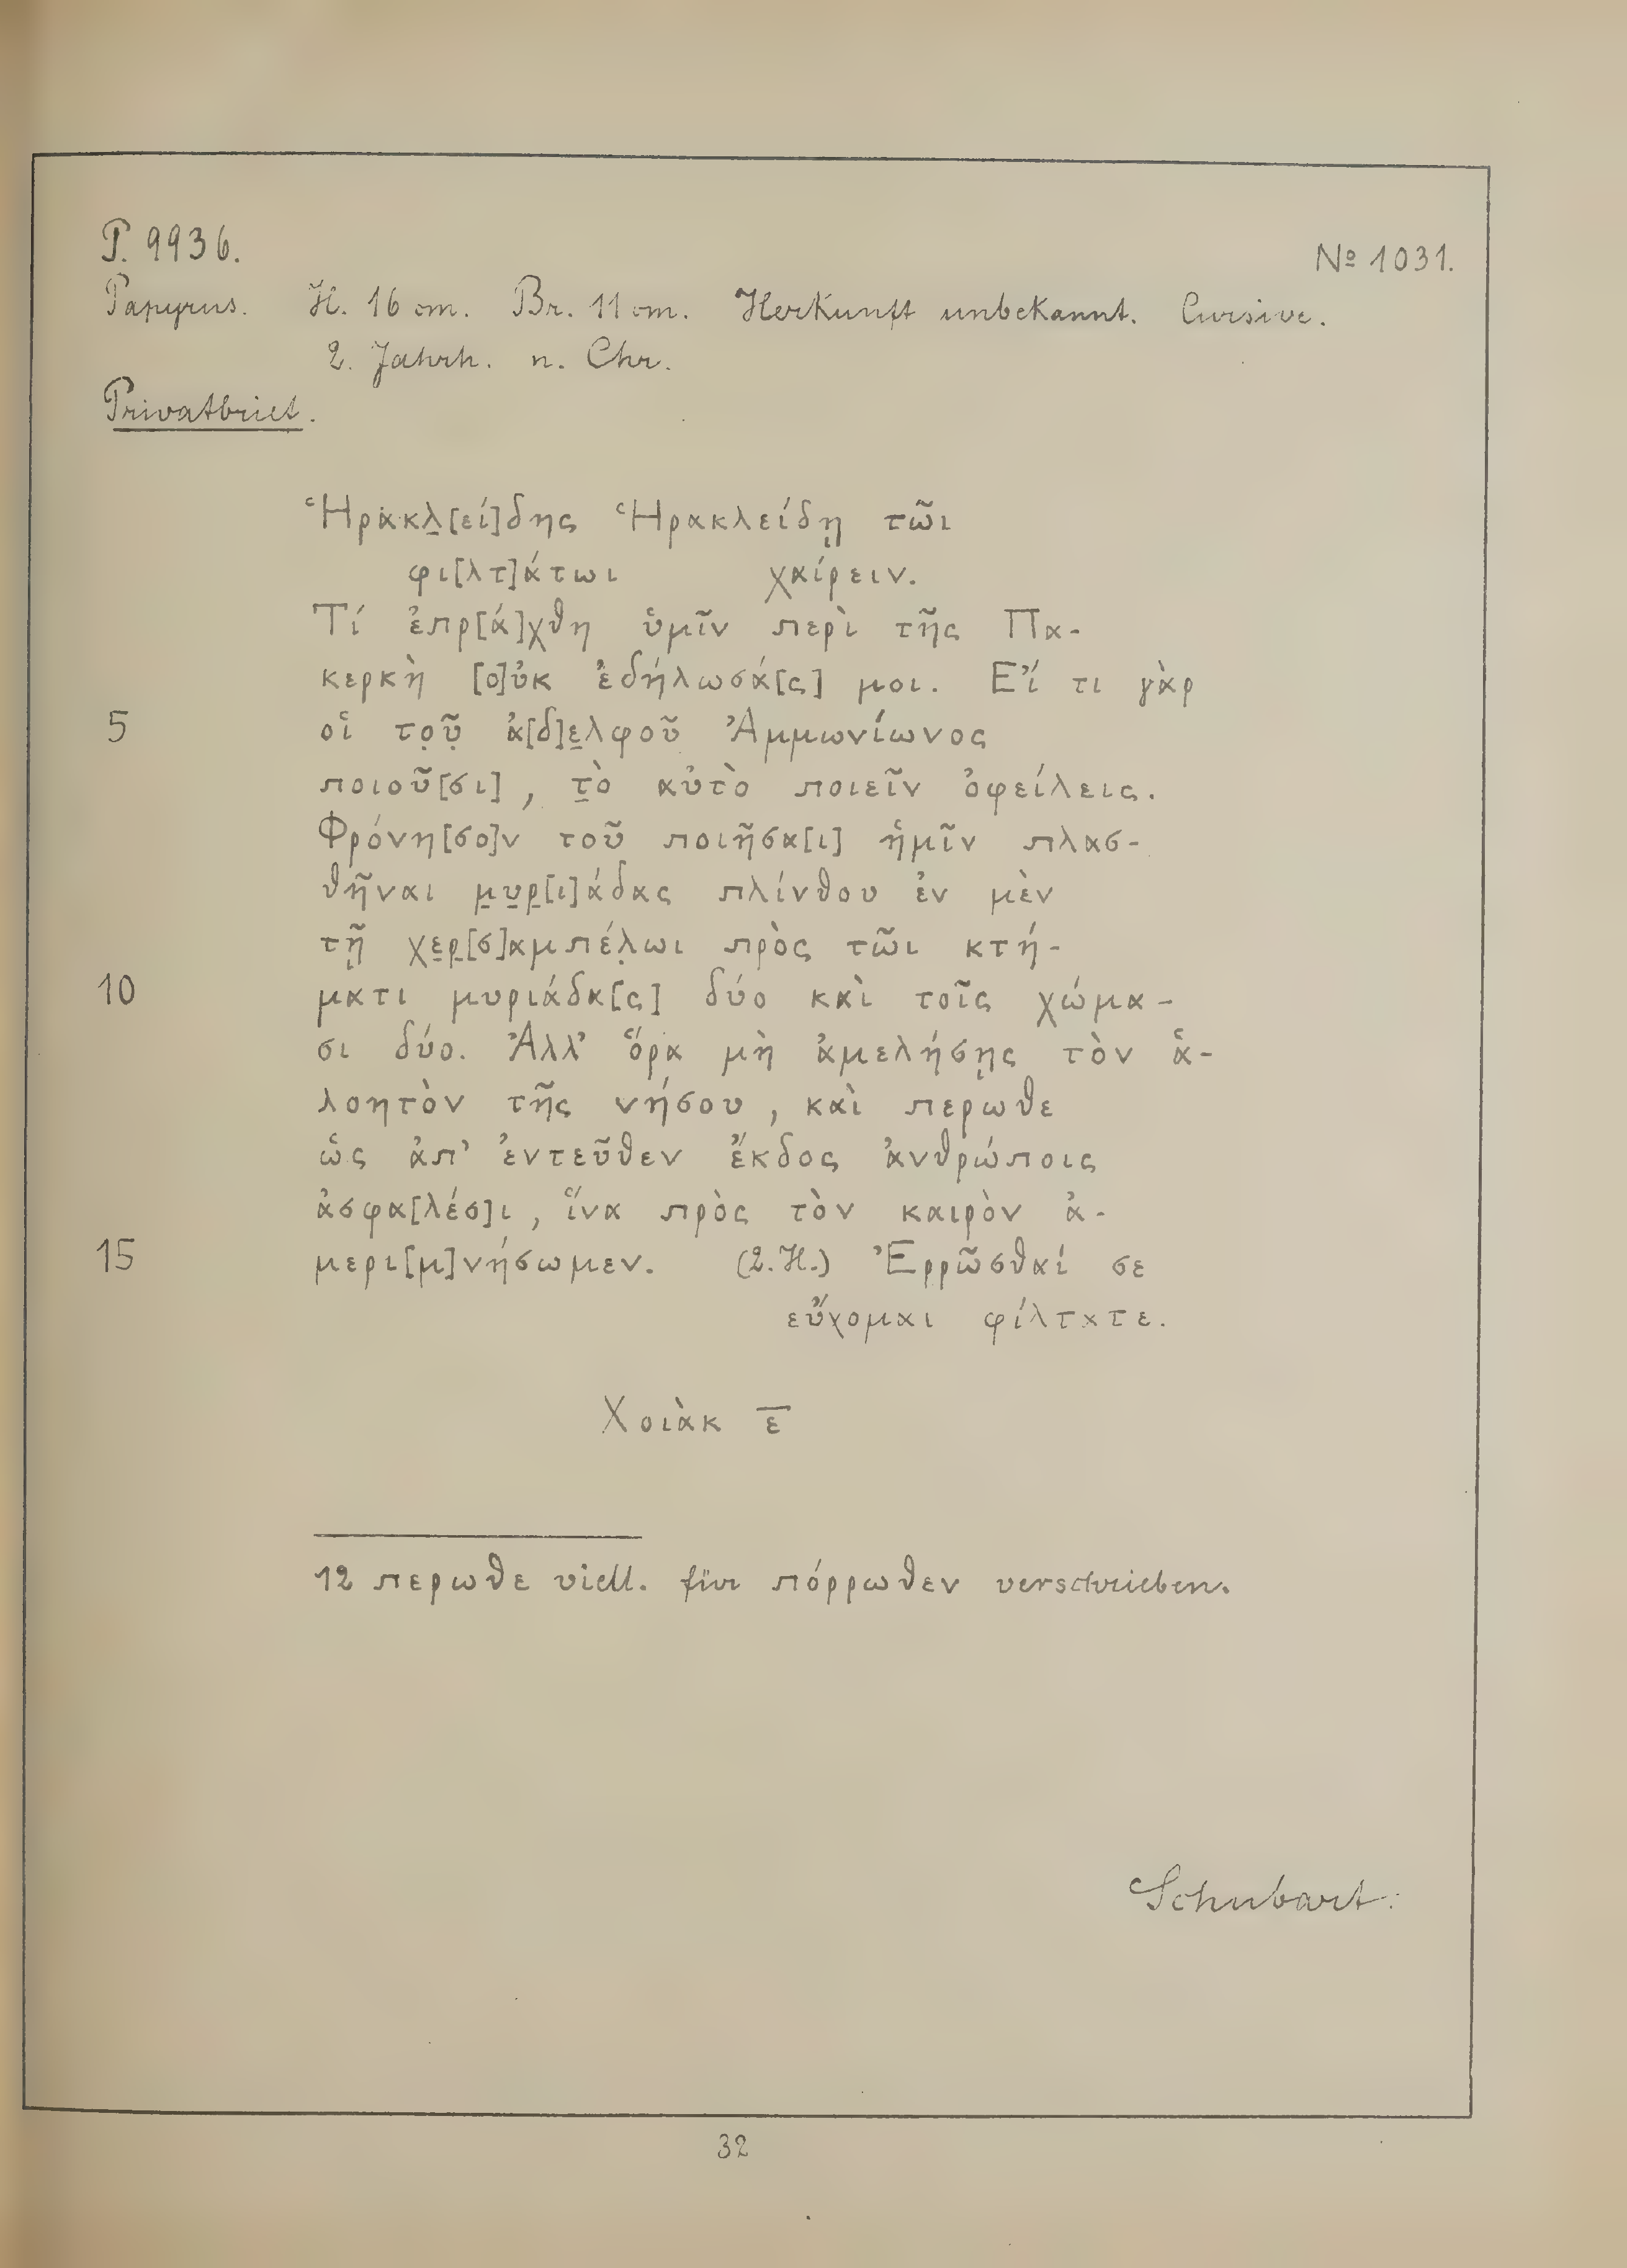 P. 9936. № 1031.
Papyrus. H. 16 cm. Br. 11 cm. Herkunft unbekannt. Cursive.
2. Jahrh. n. Chr.
Privatbrief.
Ἡρακλ̣[εί]δης Ἡρακλείδῃ τῶι
φι[λτ]άτωι χαίρειν.
Τί ἐπρ[ά]χθη ὑμῖν περὶ τῆς Πα-
κερκὴ [ο]ὐκ ἐδήλωσά[ς] μοι. Εἴ τι γὰρ
5 οἱ τọῦ̣ ἀ[δ]ε̣λφοῦ Ἀμμωνίωνος
ποιοῦ[σι], τ̣ὸ αὐτὸ ποιεῖν ὀφείλεις.
Φρόνη[σο]ν τοῦ ποιῆσα[ι] ἡμῖν πλασ-
θῆναι μ̣υ̣ρ̣[ι]άδας πλίνθου ἐν μὲν
τῇ χε̣ρ̣[σ]αμπέλ̣ωι πρὸς τῶι κτή-
10 ματι μυριάδα[ς] δύο καὶ τοῖς χώμα-
σι δύο. Ἀλλ’ ὅρα μὴ ἀμελήσῃς τὸν ἁ-
λοητὸν τῆς νήσου, καὶ περωθε
ὡς ἀπ’ ἐντεῦθεν ἔκδος ἀνθρώποις
ἀσφα[λέσ]ι, ἵνα πρὸς τὸν καιρὸν ἀ-
15 μερι[μ]νήσωμεν. (2. H.) Ἐρρῶσθαί σε
εὔχομαι φίλτατε.
Χοιὰκ ε̅
12 περωθε viell. für πόρρωθεν verschrieben.
Schubart.
32